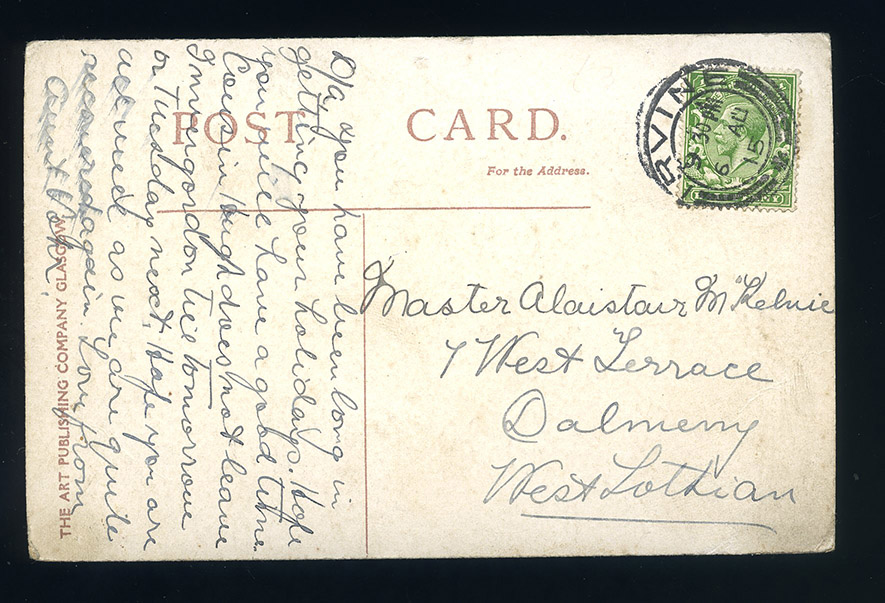 POST CARD.
For the Address.
IRVINE
9 30 AM
6 AU
15
D/a you have been long in
getting your holidays. Hope
you will have a good time.
Cousin Hugh does not leave
Invergordon till tomorrow
or Tuesday next, Hope you are
all well as we are quite
recovered again. Love from
Aunt
Master Alaistair McKelvie
7 West Terrace
Dalmeny
West Lothian
THE ART PUBLISHING COMPANY GLASGOW